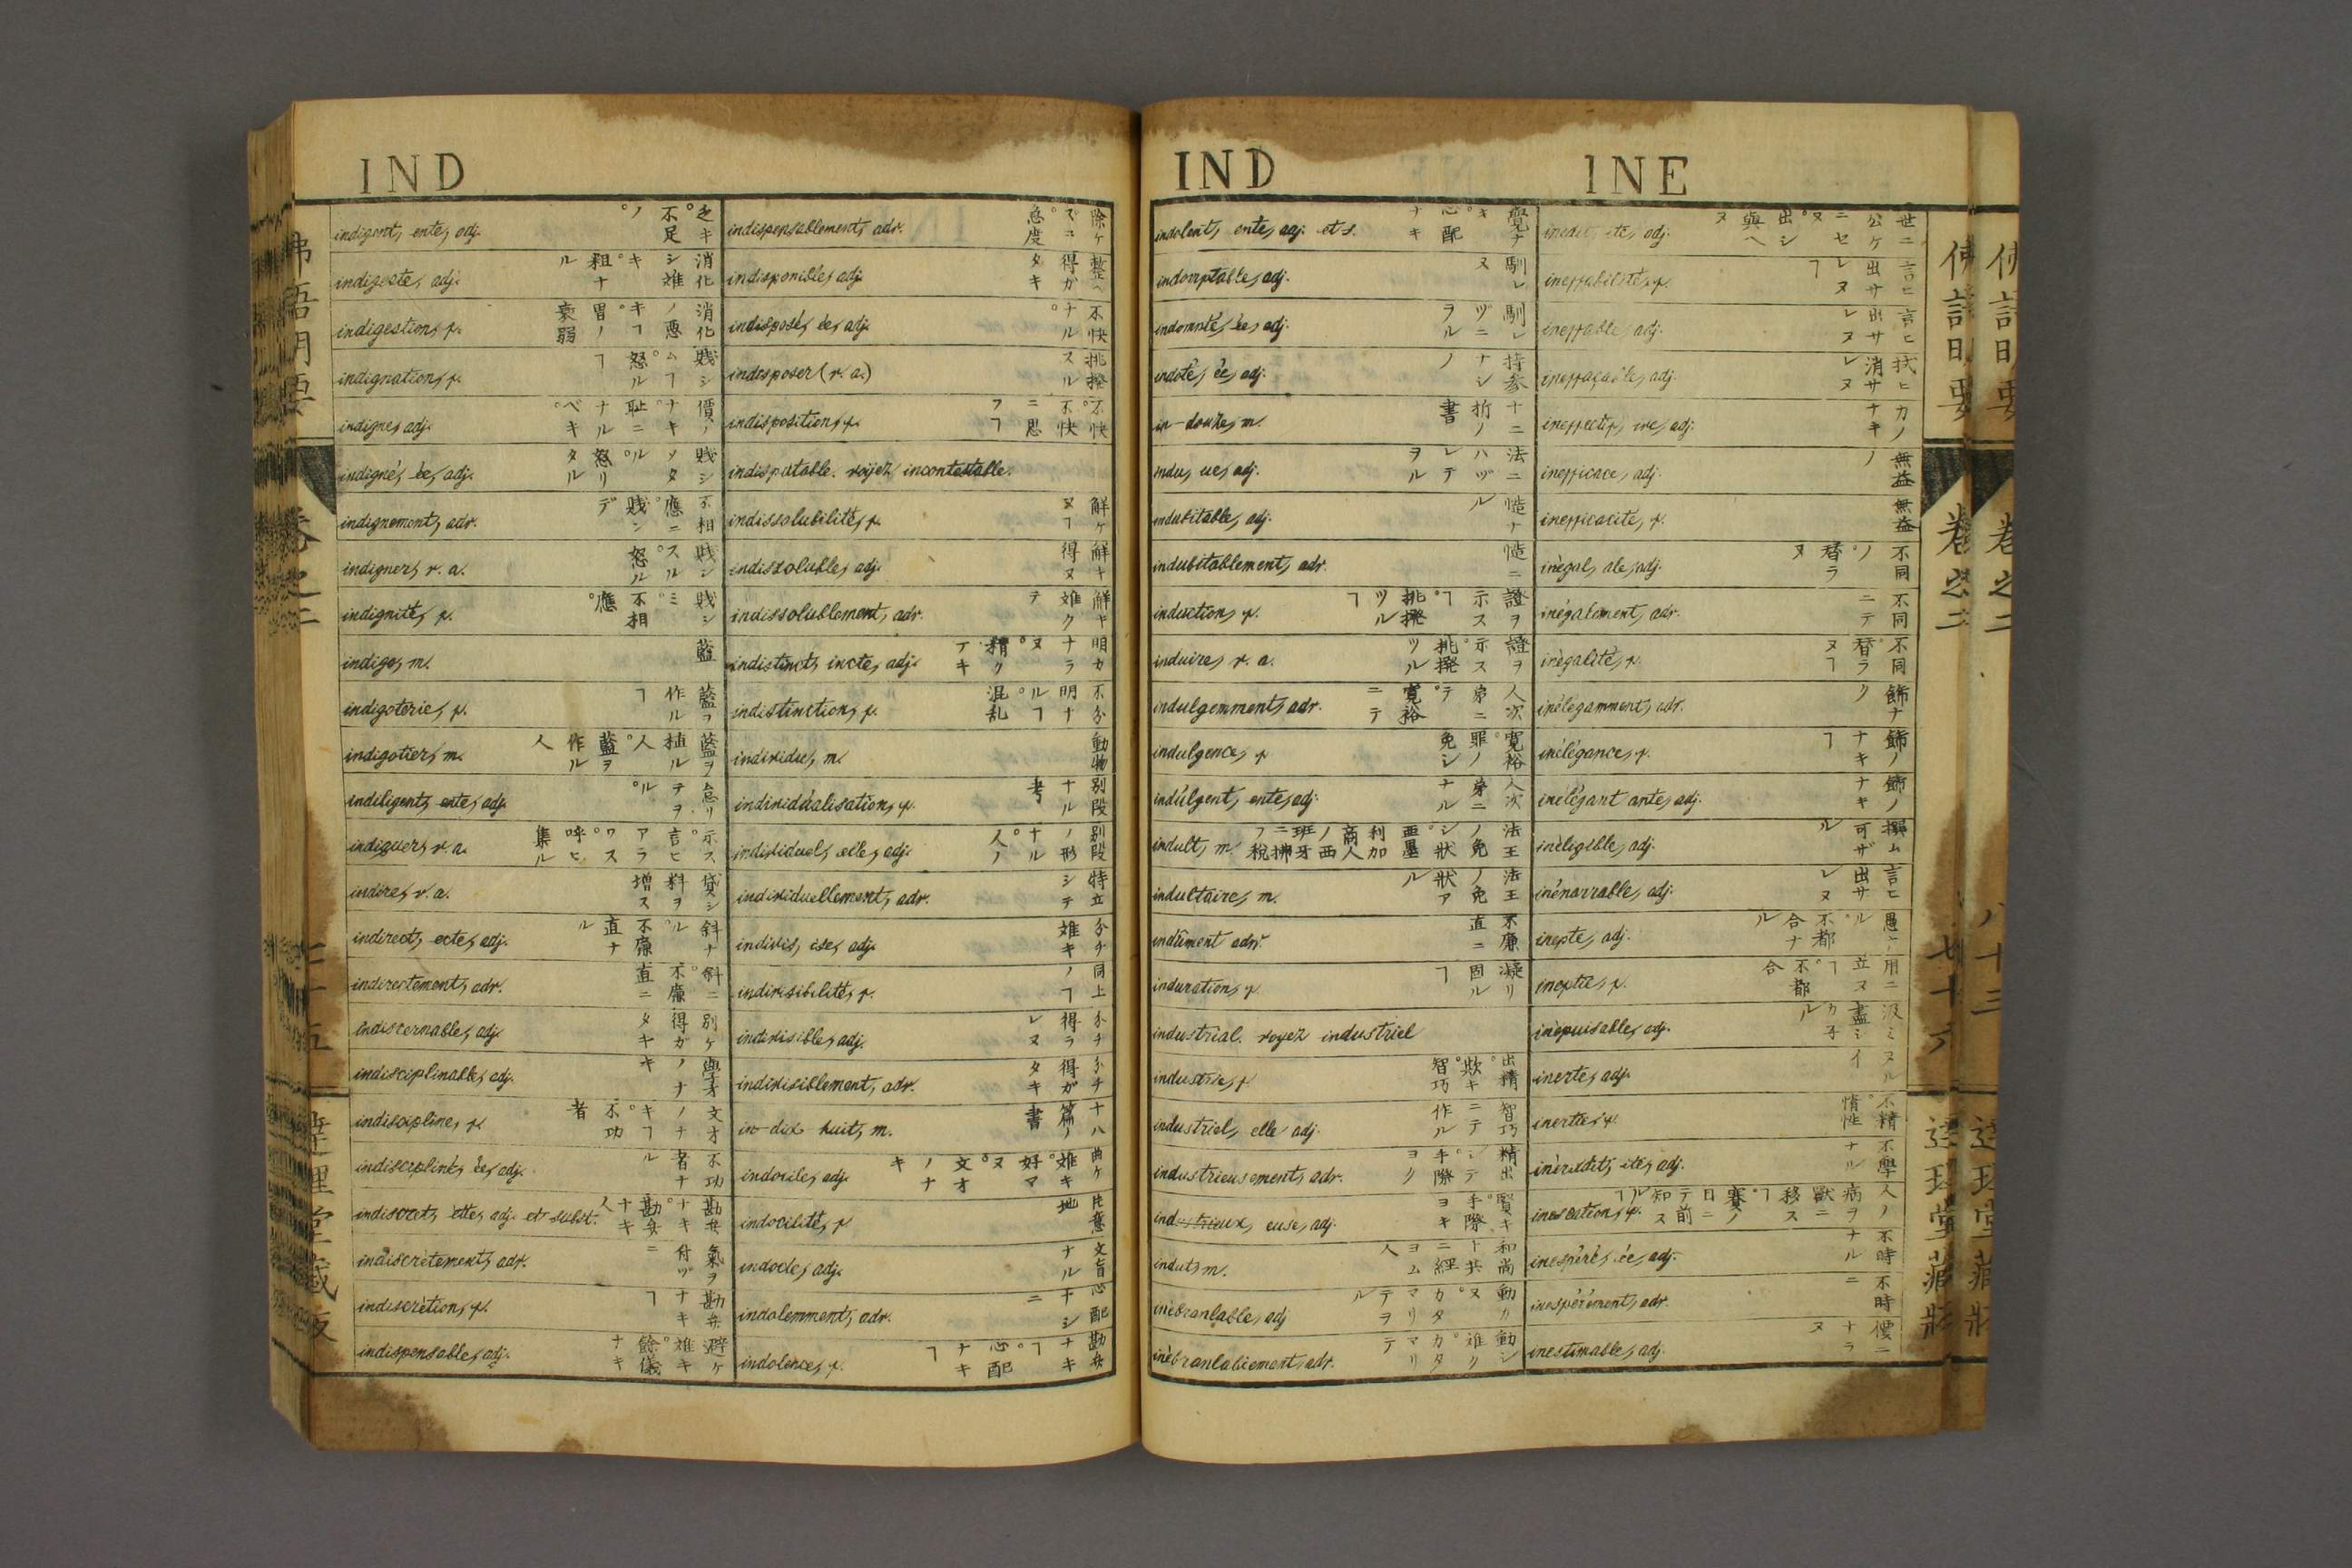 IND
indigent, ente, adj. 乏キ。不足ノ。
indigeste, adj. 消化シ難キ。粗ナル
indigestion, f. 消化ノ悪キヿ。胃ノ衰弱
indignation, f. 賤シムヿ。怒ルヿ
indigne, adj. 價ノナキ。恥ニナルベキ。
indigné, ée, adj. 賤シメタル。怒リタル
indignement, adv. 不相應ニ。賤シデ
indigner, v. a. 賤シスル。怒ル
indignité, f. 賤シミ。不相應。
indigo, m. 藍
indigoterie, f. 藍ヲ作ルヿ
indigotier, m. 藍ヲ植ル人。藍ヲ作ル人
indiligent, ente, adj. 怠リテヲル。
indiquer, v. a. 示ス。言ヒアラワス。呼ヒ集ル
indire, v. a. 貸シ料ヲ増ス
indirect, ecte, adj. 斜ナル。不廉直ナル
indirectement, adv. 斜ニ。不廉直ニ
indiscernable, adj. 別ケ得ガタキ
indisciplinable, adj. 學才ノナキ
indiscipline, f. 文才ノナキヿ。不功者
indiscipliné, ée, adj. 不功者ナル
indiscret, ette, adj. et subst. 勘弁ナキ。勘弁ナキ人
indiscrètement, adv. 氣ヲ付ヅニ
indiscrétion, f. 勘弁ナキヿ
indispensable, adj. 避ケ難キ。餘儀ナキ
indispensablement, adv. 除ケズニ。急度
indisponible, adj. 整ヘ得ガタキ
indisposé, ée, adj. 不快ナル。
indisposer (v. a.) 挑撥スル
indisposition, f. 不快。不快ニ思フヿ
indisputable. voyez incontestable.
indissolubilité, f. 解ケヌヿ
indissoluble, adj. 解キ得ヌ
indissolublement, adv. 解キ難クテ
indistinct, incte, adj. 明カナラヌ。
indistinction, f. 不分明ナルヿ。混乱
individu, m. 動物
individualisation, f. 別段ナル考
individuel, elle, adj. 別段ノ形ナル。人ノ
individuellement, adv. 特立シテ
indivis, ise, adj. 分チ難キ
indivisibilité, f. 同上ノヿ
indivisible, adj. 分チ得ラレヌ
indivisiblement, adv. 分チ得ガタキ
in-dix huit, m. 十八篇ノ書
indocile, adj. 曲ケ難キ。好マヌ。文才ノナキ
indocilité, f. 片意地
indocte, adj. 文盲ナル
indolemment, adv. 心配ナシニ
indolence, f. 勘弁ナキヿ。心配ナキヿ
IND
INE
indolent, ente, adj. et s. 覺ナキ。心配ナキ
indomptable, adj. 馴レヌ
indompté, ée, adj. 馴レヅニヲル
indoté, ée, adj. 持参ナシノ
in-douze, m. 十二折ノ書
indu, ue, adj. 法ニハヅレテヲル
indubitable, adj. 慥ナル
indubitablement, adv. 慥ニ
induction, f. 證ヲ示スヿ。挑撥ツルヿ
induire, v. a. 證ヲ示ス。挑撥ツル
indulgemment, adv. 人次第ニテ。寛裕ニテ
indulgence, f. 寛裕。罪ノ免シ
indulgent, ente, adj. 人次第ニナル
indult, m. 法王ノ免狀。
indultaire, m. 法王ノ免狀アル
indûment adv. 不廉直ニ
induration, f. 凝リ固ルヿ
industrial. voyez industriel
industrie, f. 出精。欺キ。智巧
industriel, elle adj. 智巧ニテ作ル
industrieusement, adv. 精出シテ。手際ヨク
industrieux, euse, adj. 賢キ。手際ヨキ
indut, m. 和尚ト共ニ經ヨム人
inébranlable, adj 動カヌ。カタマリテヲル
inébranlablement, adv. 動シ難ク。カタマリテ
inédit, ite, adj. 世ニ公ケニセヌ。出シ與ヘヌ
ineffabilité, f. 言ヒ出サレヌヿ
ineffable, adj. 言ヒ出サレヌ
ineffaçable, adj. 拭ヒ消サレヌ
ineffectif, ive, adj. 力ノナキ
inefficace, adj. 無益ノ
inefficacité, f. 無益
inégal, ale, adj. 不同ノ。替ラヌ
inégalement, adv. 不同ニテ
inégalité, f. 不同。替ラヌヿ
inélégamment, adv. 飾ナク
inélégance, f. 飾ノナキヿ
inélégant ante, adj. 飾ノナキ
inéligible, adj. 撰ム可ザル
inénarrable, adj. 言ヒ出サレヌ
inepte, adj. 愚ナル。不都合ナル
ineptie, f. 用ニ立ヌヿ。不都合
inépuisable, adj. 汲ミ盡ミ
inerte, adj.
inertie, f. 不精。惰性
inérudit, ite, adj. 不學ナル
inescation, f. 人ノ病ヲ獸ニ移スヿ。
inespéré, ée, adj. 不時ナル
inespérément, adv. 不時ニ
inestimable, adj. 價ニナラヌ
佛語明要
卷之二
達理堂藏版